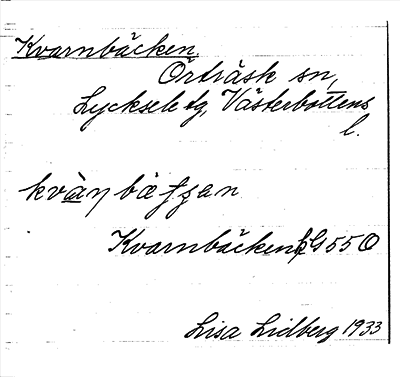 Kvarnbäcken.
Örträsk sn,
Lycksele tg, Västerbottens
l.
Kvarnbäcken
Lisa Lidberg 1933